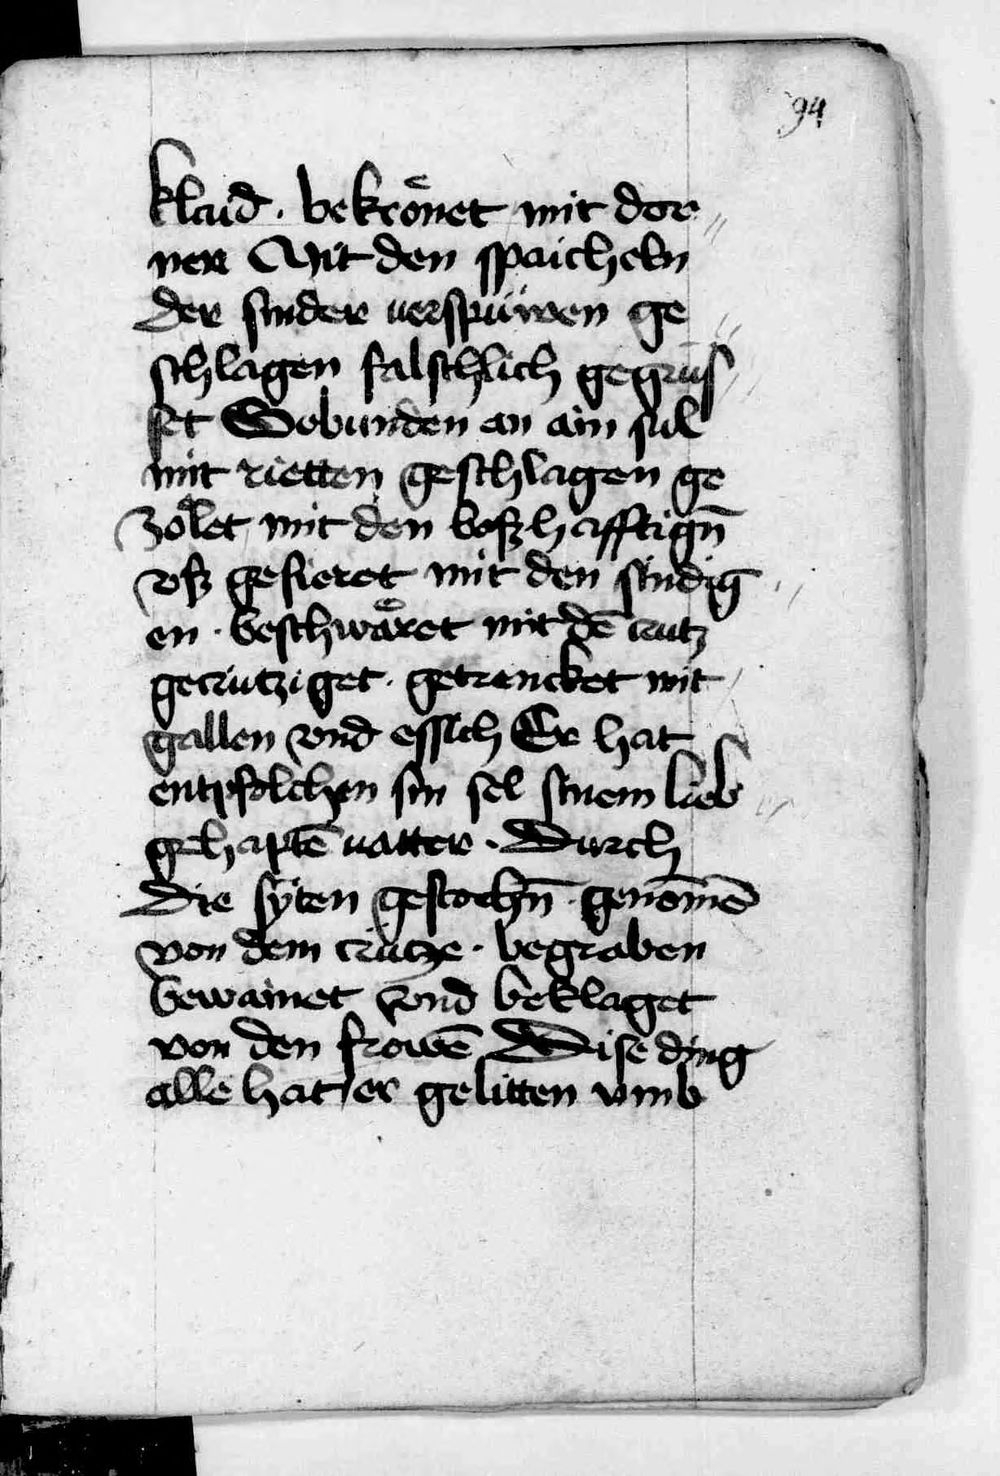 94
klaid · bekrönet mit dor
nen Mit den spaicheln
der sinder verspüwen ge
schlagen falschlich gegrüs
set Gebunden an ain sul
mit rietten geschlagen ge
zölet mit den boßhafftign̄
vß gefieret mit den sindig
en · beschwäret mit dē crütz
gecrütziget · getrencket mit
gallen vnd essich Er hat
entpfolchen sin sel sinem lieb
gehaptē vatter · Durch
die syten gestochn̄ · genom̄ē
von dem crütze · begraben
bewainet vnd beklaget
von den frowē Dise ding
alle hat er gelitten vmb